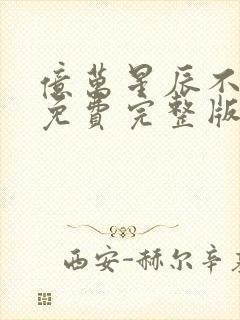 億萬星辰不
免費完整版
西安-赫尔辛